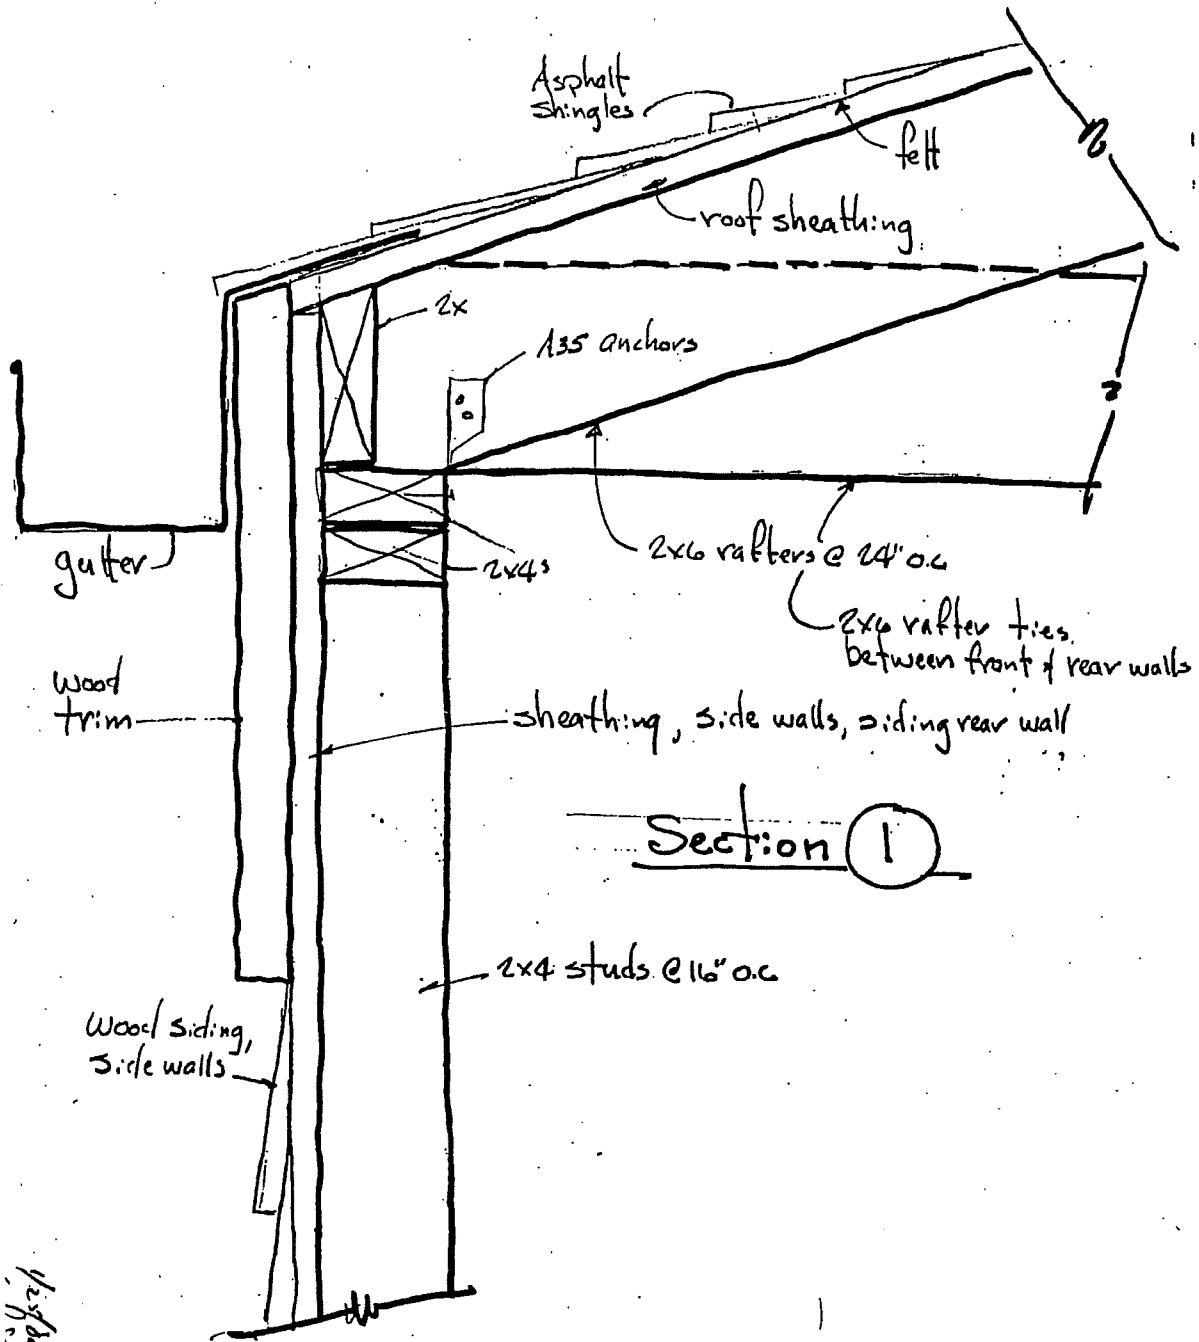 Asphalt
shingles
felt
roof sheathing
2x
A35 anchors
gutter
2x4s
2x6 rafters @ 24" o.c
2x6 rafter ties,
between front & rear walls
wood
trim
sheathing, side walls, siding rear wall
Section 1
2x4 studs @ 16" o.c
Wood siding,
side walls